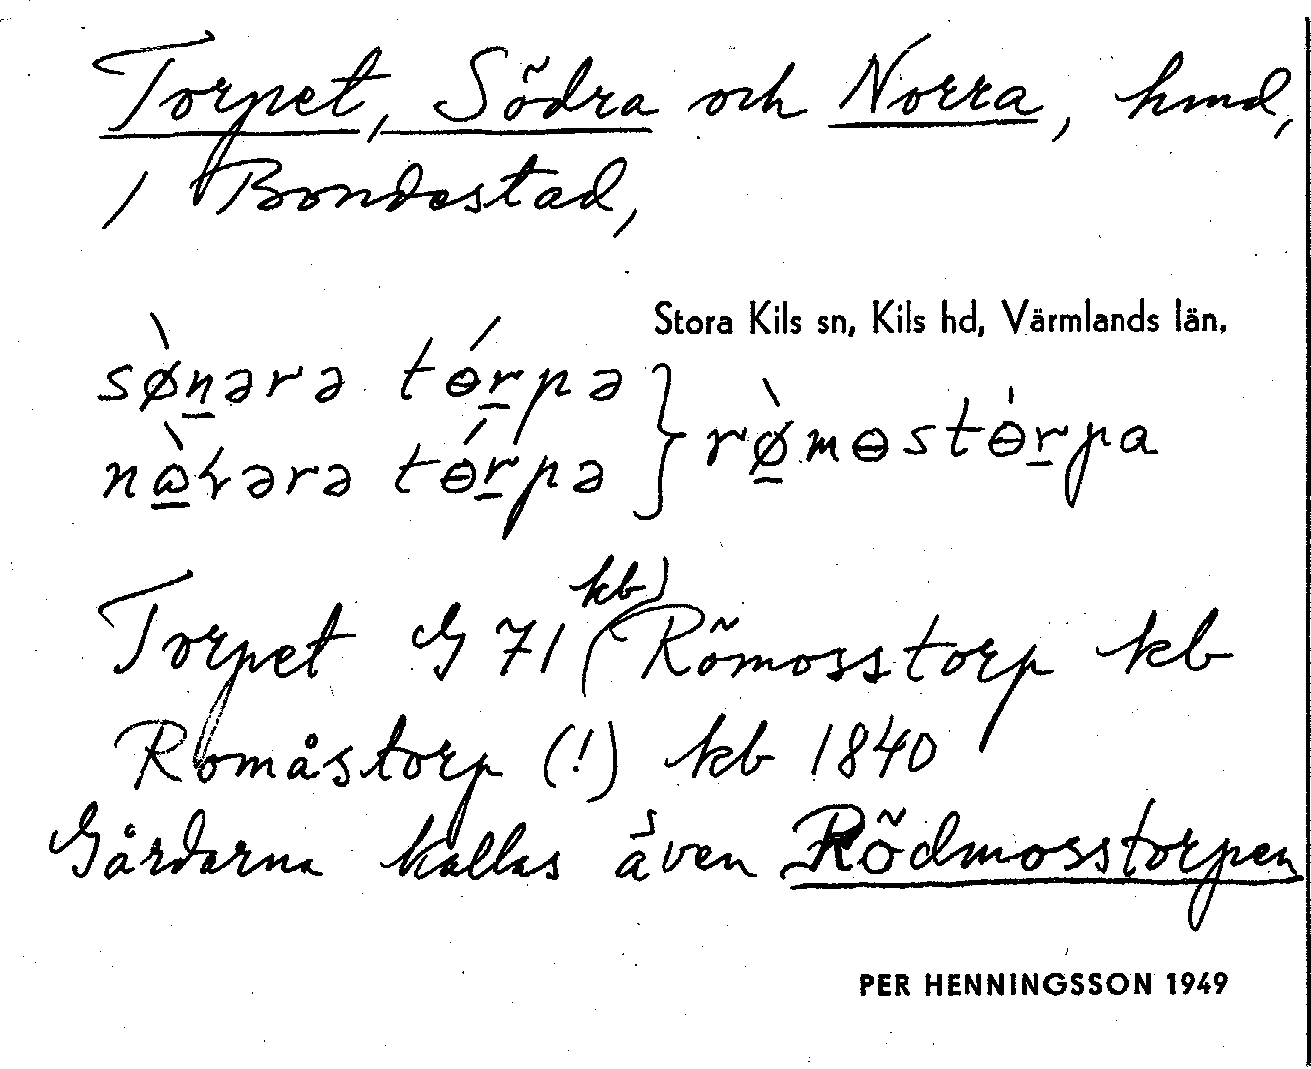 Torpet, Södra och Norra, hmd,
i Bondestad,
Stora Kils sn, Kils hd, Värmlands län.
sø̀n̲ərə tɵ́r̲pə
nɷ̲̀rərə tɵ́r̲pə } rø̲̀mɵstɵ̀r̲pa
Torpet G 71 (Römosstorp kb
kb)
Romåstorp (!) kb 1840
Gårdarna kallas även Rödmosstorpen
PER HENNINGSSON 1949